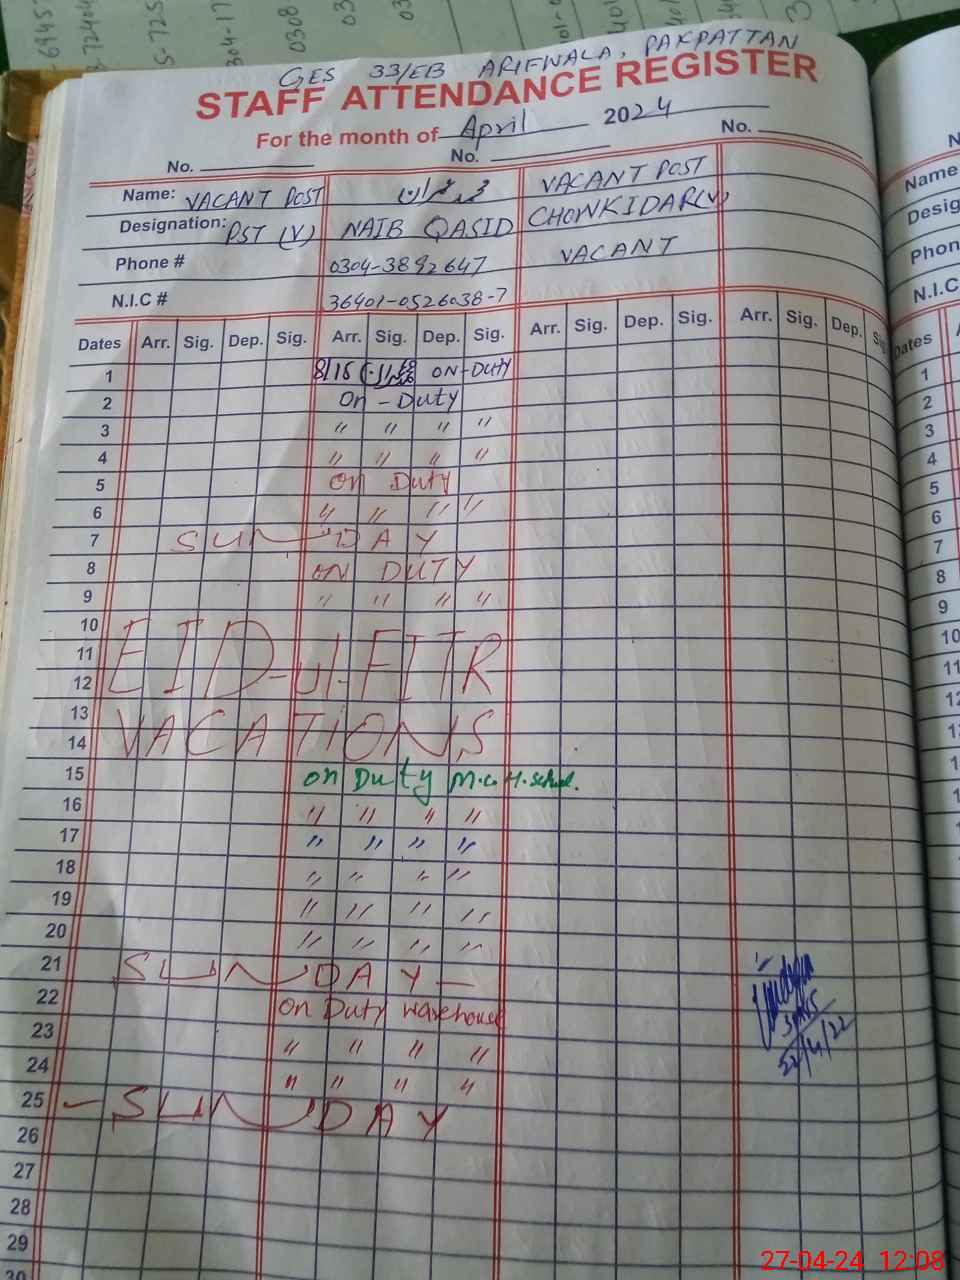 GES 33/EB ARIFWALA, PAKPATTAN
STAFF ATTENDANCE REGISTER
For the month of April 2024
No. No. No.
Name: VACANT POST VACANT POST
Designation: PST (V) NAIB QASID CHOWKIDAR(V)
Phone # 0304-3892647 VACANT
N.I.C # 36401-0526038-7
Dates Arr. Sig. Dep. Sig. Arr. Sig. Dep. Sig. Arr. Sig. Dep. Sig. Arr. Sig. Dep.
1 8/15 ON-DUTY
2 On - Duty
3 " " " "
4 " " " "
5 On Duty
6 " " " "
7 SUNDAY
8 ON DUTY
9 " " " "
10
11 EID-ul-FITR
12
13 VACATIONS
14
15 on Duty M.C.H.School.
16 " " " "
17 " " " "
18 " " " "
19 " " " "
20 " " " "
21 SUNDAY
22 on Duty warehouse
23 " " " "
24 " " " "
25 - SUNDAY
26
27
28
29
30
22/4/22
Name
Desig
Phon
N.I.C
Dates
1
2
3
4
5
6
7
8
9
10
11
12
13
14
15
16
17
18
27-04-24 12:08